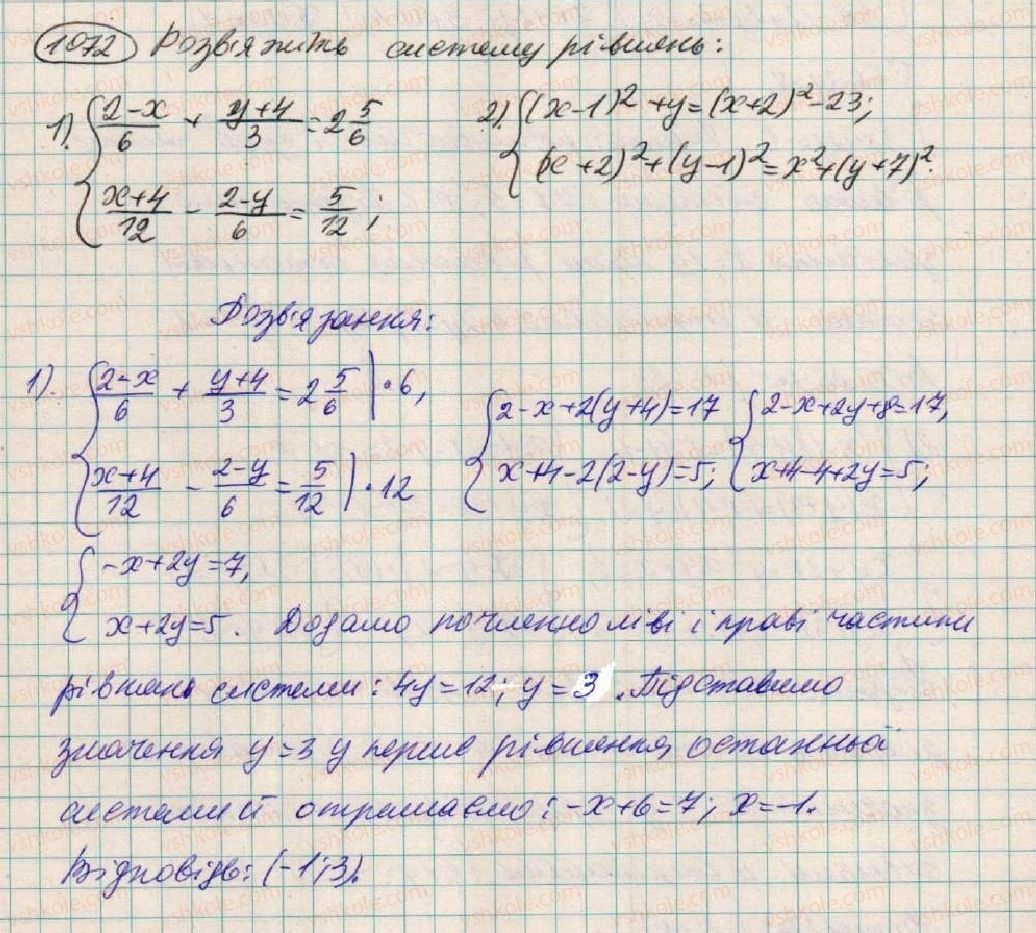 1072 Розв'яжіть систему рівнянь:
1). { (2-x)/6 + (y+4)/3 = 2 5/6
(x+4)/12 - (2-y)/6 = 5/12;
2). { (x-1)² + y = (x+2)² - 23;
(x+2)² + (y-1)² = x² + (y+7)².
Розв'язання:
1). { (2-x)/6 + (y+4)/3 = 2 5/6 | · 6,
(x+4)/12 - (2-y)/6 = 5/12 | · 12
{ 2-x+2(y+4)=17
x+4-2(2-y)=5;
{ 2-x+2y+8=17,
x+4-4+2y=5;
{ -x+2y=7,
x+2y=5. Додамо почленно ліві і праві частини
рівнянь системи: 4y=12; y=3. Підставимо
значення y=3 у перше рівняння останньої
системи й отримаємо: -x+6=7; x=-1.
Відповідь: (-1;3).